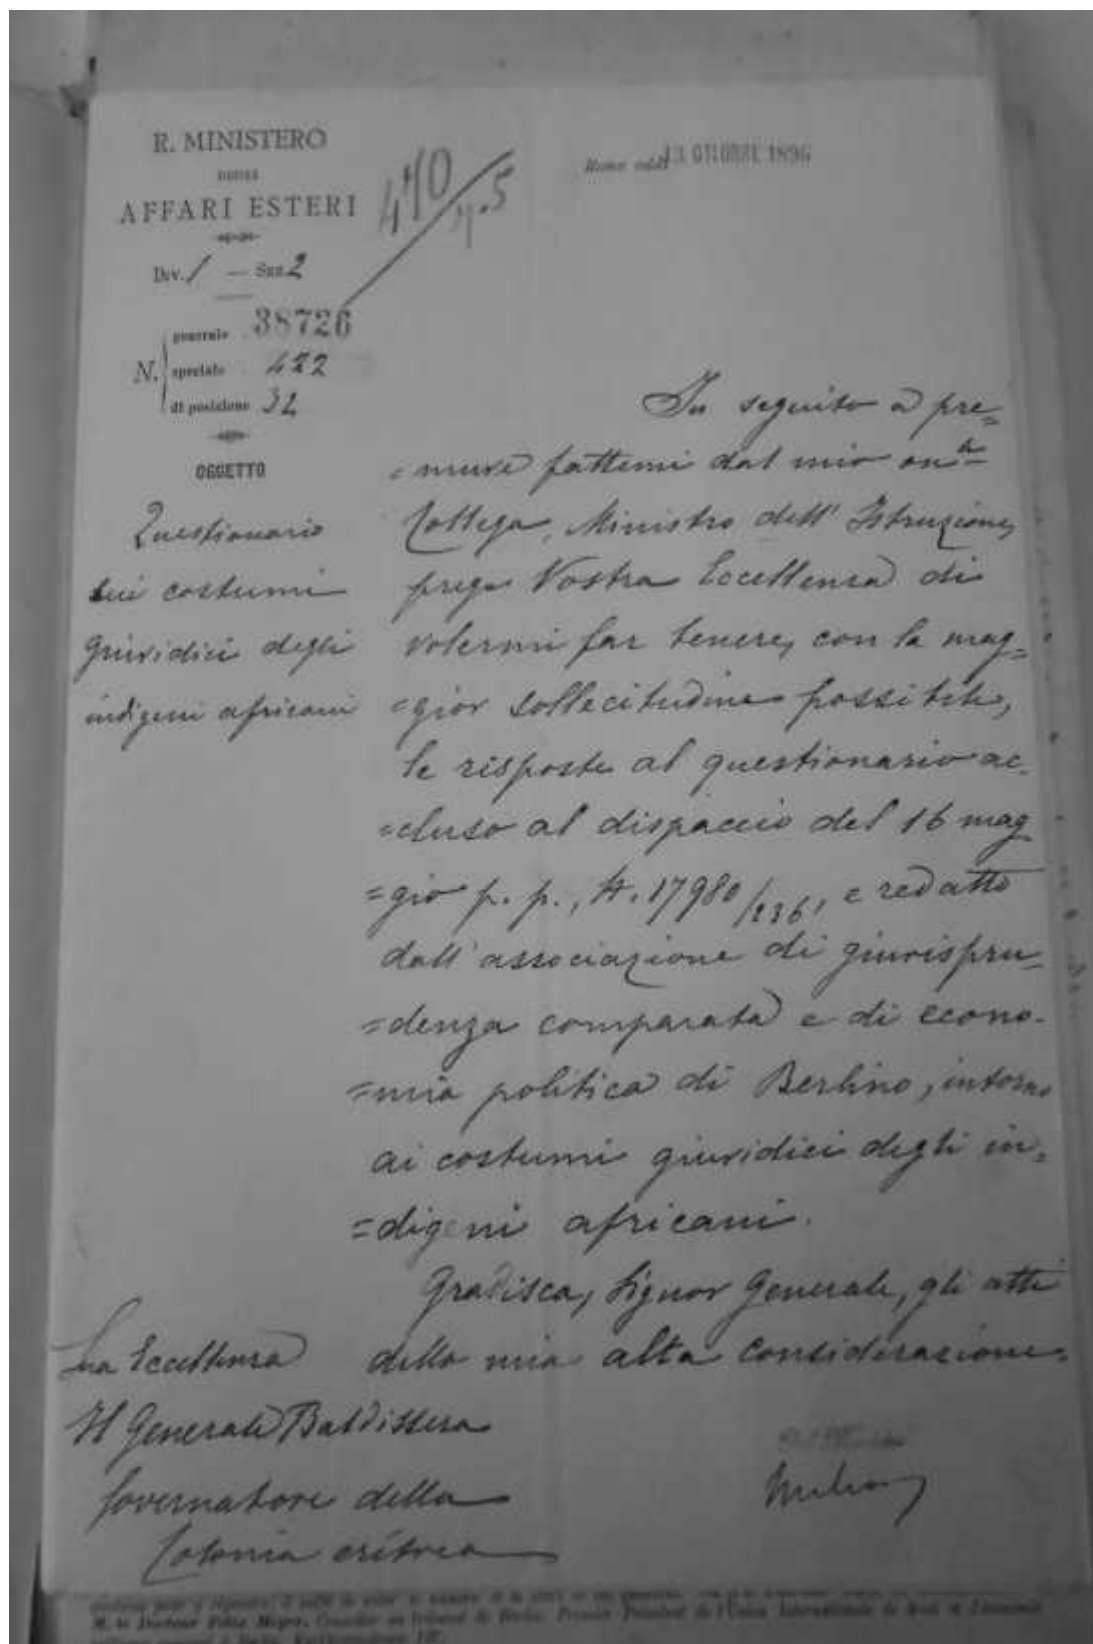 R. MINISTERO
DEGLI
AFFARI ESTERI
Div. 1 — Sez. 2
N. generale 38726
speciale 422
di posizione 32
OGGETTO
Questionario
sui costumi
giuridici degli
indigeni africani
470/4.5
Roma addì 13 OTTOBRE 1896
In seguito a pre=
=mure fattemi dal mio on.le
Collega, Ministro dell' Istruzione,
prego Vostra Eccellenza di
volermi far tenere, con la mag=
=gior sollecitudine possibile,
le risposte al questionario ac=
=cluso al dispaccio del 16 mag
=gio p. p., N. 17980/236, e redatto
dall' associazione di giurispru=
=denza comparata e di econo=
=mia politica di Berlino, intorno
ai costumi giuridici degli in=
=digeni africani.
Gradisca, Signor Generale, gli atti
della mia alta considerazione.
Sua Eccellenza
Il Generale Baldissera
Governatore della
Colonia eritrea
M. le Docteur Félix Meyer, Conseiller au tribunal de Berlin, Premier Président de l'Union Internationale de droit et d'économie